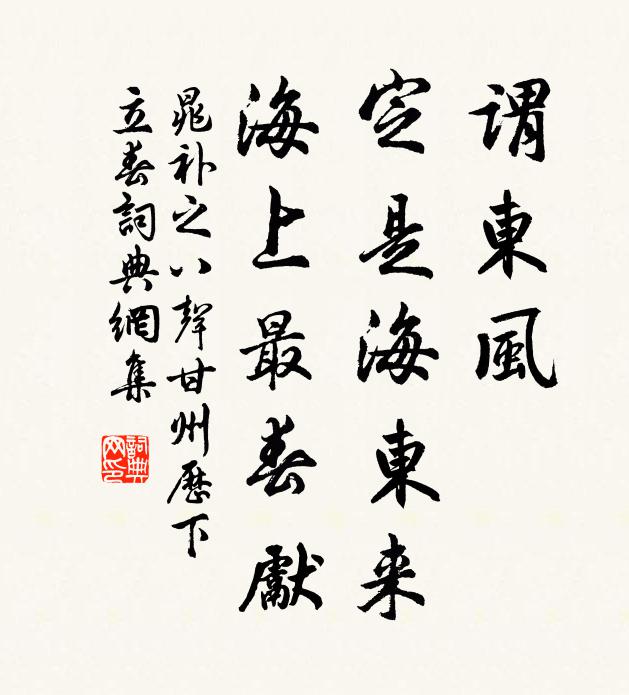 謂東風
定是海東来
海上最春獻
晁补之八聲甘州歷下
立春詞典網集
詞典网印